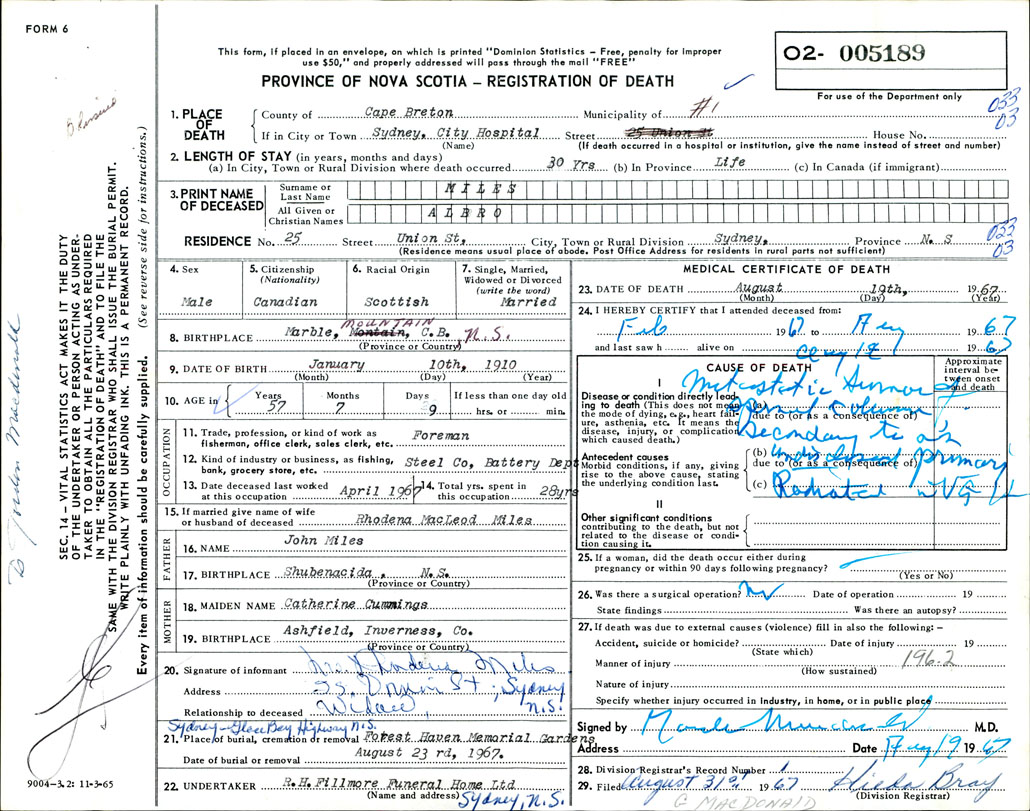 FORM 6
This form, if placed in an envelope, on which is printed "Dominion Statistics – Free, penalty for improper
use $50," and properly addressed will pass through the mail "FREE"
PROVINCE OF NOVA SCOTIA – REGISTRATION OF DEATH
02- 005189
For use of the Department only
033
03
1. PLACE OF DEATH
County of Cape Breton Municipality of #1
If in City or Town Sydney, City Hospital Street 25 Union St House No.
(Name) (If death occurred in a hospital or institution, give the name instead of street and number)
2. LENGTH OF STAY (in years, months and days)
(a) In City, Town or Rural Division where death occurred 30 Yrs (b) In Province Life (c) In Canada (if immigrant)
3. PRINT NAME OF DECEASED
Surname or Last Name MILES
All Given or Christian Names ALBRO
033
03
RESIDENCE No. 25 Street Union St, City, Town or Rural Division Sydney, Province N. S
(Residence means usual place of abode. Post Office Address for residents in rural parts not sufficient)
4. Sex
Male
5. Citizenship
(Nationality)
Canadian
6. Racial Origin
Scottish
7. Single, Married,
Widowed or Divorced
(write the word)
Married
8. BIRTHPLACE Marble, Montain, MOUNTAIN C.B. N.S.
(Province or Country)
9. DATE OF BIRTH January 10th, 1910
(Month) (Day) (Year)
10. AGE in
Years Months Days If less than one day old
57 7 9 hrs. or min.
OCCUPATION
11. Trade, profession, or kind of work as
fisherman, office clerk, sales clerk, etc. Foreman
12. Kind of industry or business, as fishing,
bank, grocery store, etc. Steel Co, Battery Dept
13. Date deceased last worked
at this occupation April 1967
14. Total yrs. spent in
this occupation 28yrs
15. If married give name of wife
or husband of deceased Rhodena MacLeod Miles
FATHER
16. NAME John Miles
17. BIRTHPLACE Shubenacida, N.S.
(Province or Country)
MOTHER
18. MAIDEN NAME Catherine Cummings
19. BIRTHPLACE Ashfield, Inverness, Co.
(Province or Country)
20. Signature of informant Mrs Rhodena Miles
Address 25 Union St, Sydney
N.S.
Relationship to deceased Widow,
Sydney - Glace Bay Highway N.S.
21. Place of burial, cremation or removal Forest Haven Memorial Gardens
Date of burial or removal August 23 rd, 1967.
22. UNDERTAKER R.H. Fillmore Funeral Home Ltd
(Name and address) Sydney, N.S.
MEDICAL CERTIFICATE OF DEATH
23. DATE OF DEATH August 19th, 1967
(Month) (Day) (Year)
24. I HEREBY CERTIFY that I attended deceased from:
Feb 1967 to Aug 1967
and last saw h alive on Aug 1967
CAUSE OF DEATH
Approximate interval between onset and death
I
Disease or condition directly leading to death (This does not mean the mode of dying, e.g., heart failure, asthenia, etc. It means the disease, injury, or complication which caused death.)
(a) Metastatic tumor of
spinal column
due to (or as a consequence of)
Secondary to an
Antecedent causes
Morbid conditions, if any, giving rise to the above cause, stating the underlying condition last.
(b) undisclosed primary
due to (or as a consequence of)
(c) Radiated in VGH
II
Other significant conditions
contributing to the death, but not related to the disease or condition causing it.
25. If a woman, did the death occur either during
pregnancy or within 90 days following pregnancy?
(Yes or No)
26. Was there a surgical operation? No Date of operation 19
State findings Was there an autopsy?
27. If death was due to external causes (violence) fill in also the following: –
Accident, suicide or homicide? Date of injury 19
(State which)
Manner of injury 196.2
(How sustained)
Nature of injury
Specify whether injury occurred in industry, in home, or in public place
Signed by M.D.
Address Date Aug 19 1967
28. Division Registrar's Record Number
29. Filed August 31st 1967 Hilda Bray
(Division Registrar)
G MACDONALD
9004-3.2: 11-3-65
SEC. 14 – VITAL STATISTICS ACT MAKES IT THE DUTY
OF THE UNDERTAKER OR PERSON ACTING AS UNDER-
TAKER TO OBTAIN ALL THE PARTICULARS REQUIRED
IN THE "REGISTRATION OF DEATH" AND TO FILE THE
SAME WITH THE DIVISION REGISTRAR WHO SHALL ISSUE THE BURIAL PERMIT.
WRITE PLAINLY WITH UNFADING INK. THIS IS A PERMANENT RECORD.
Every item of information should be carefully supplied. (See reverse side for instructions.)
Gordon Macdonald